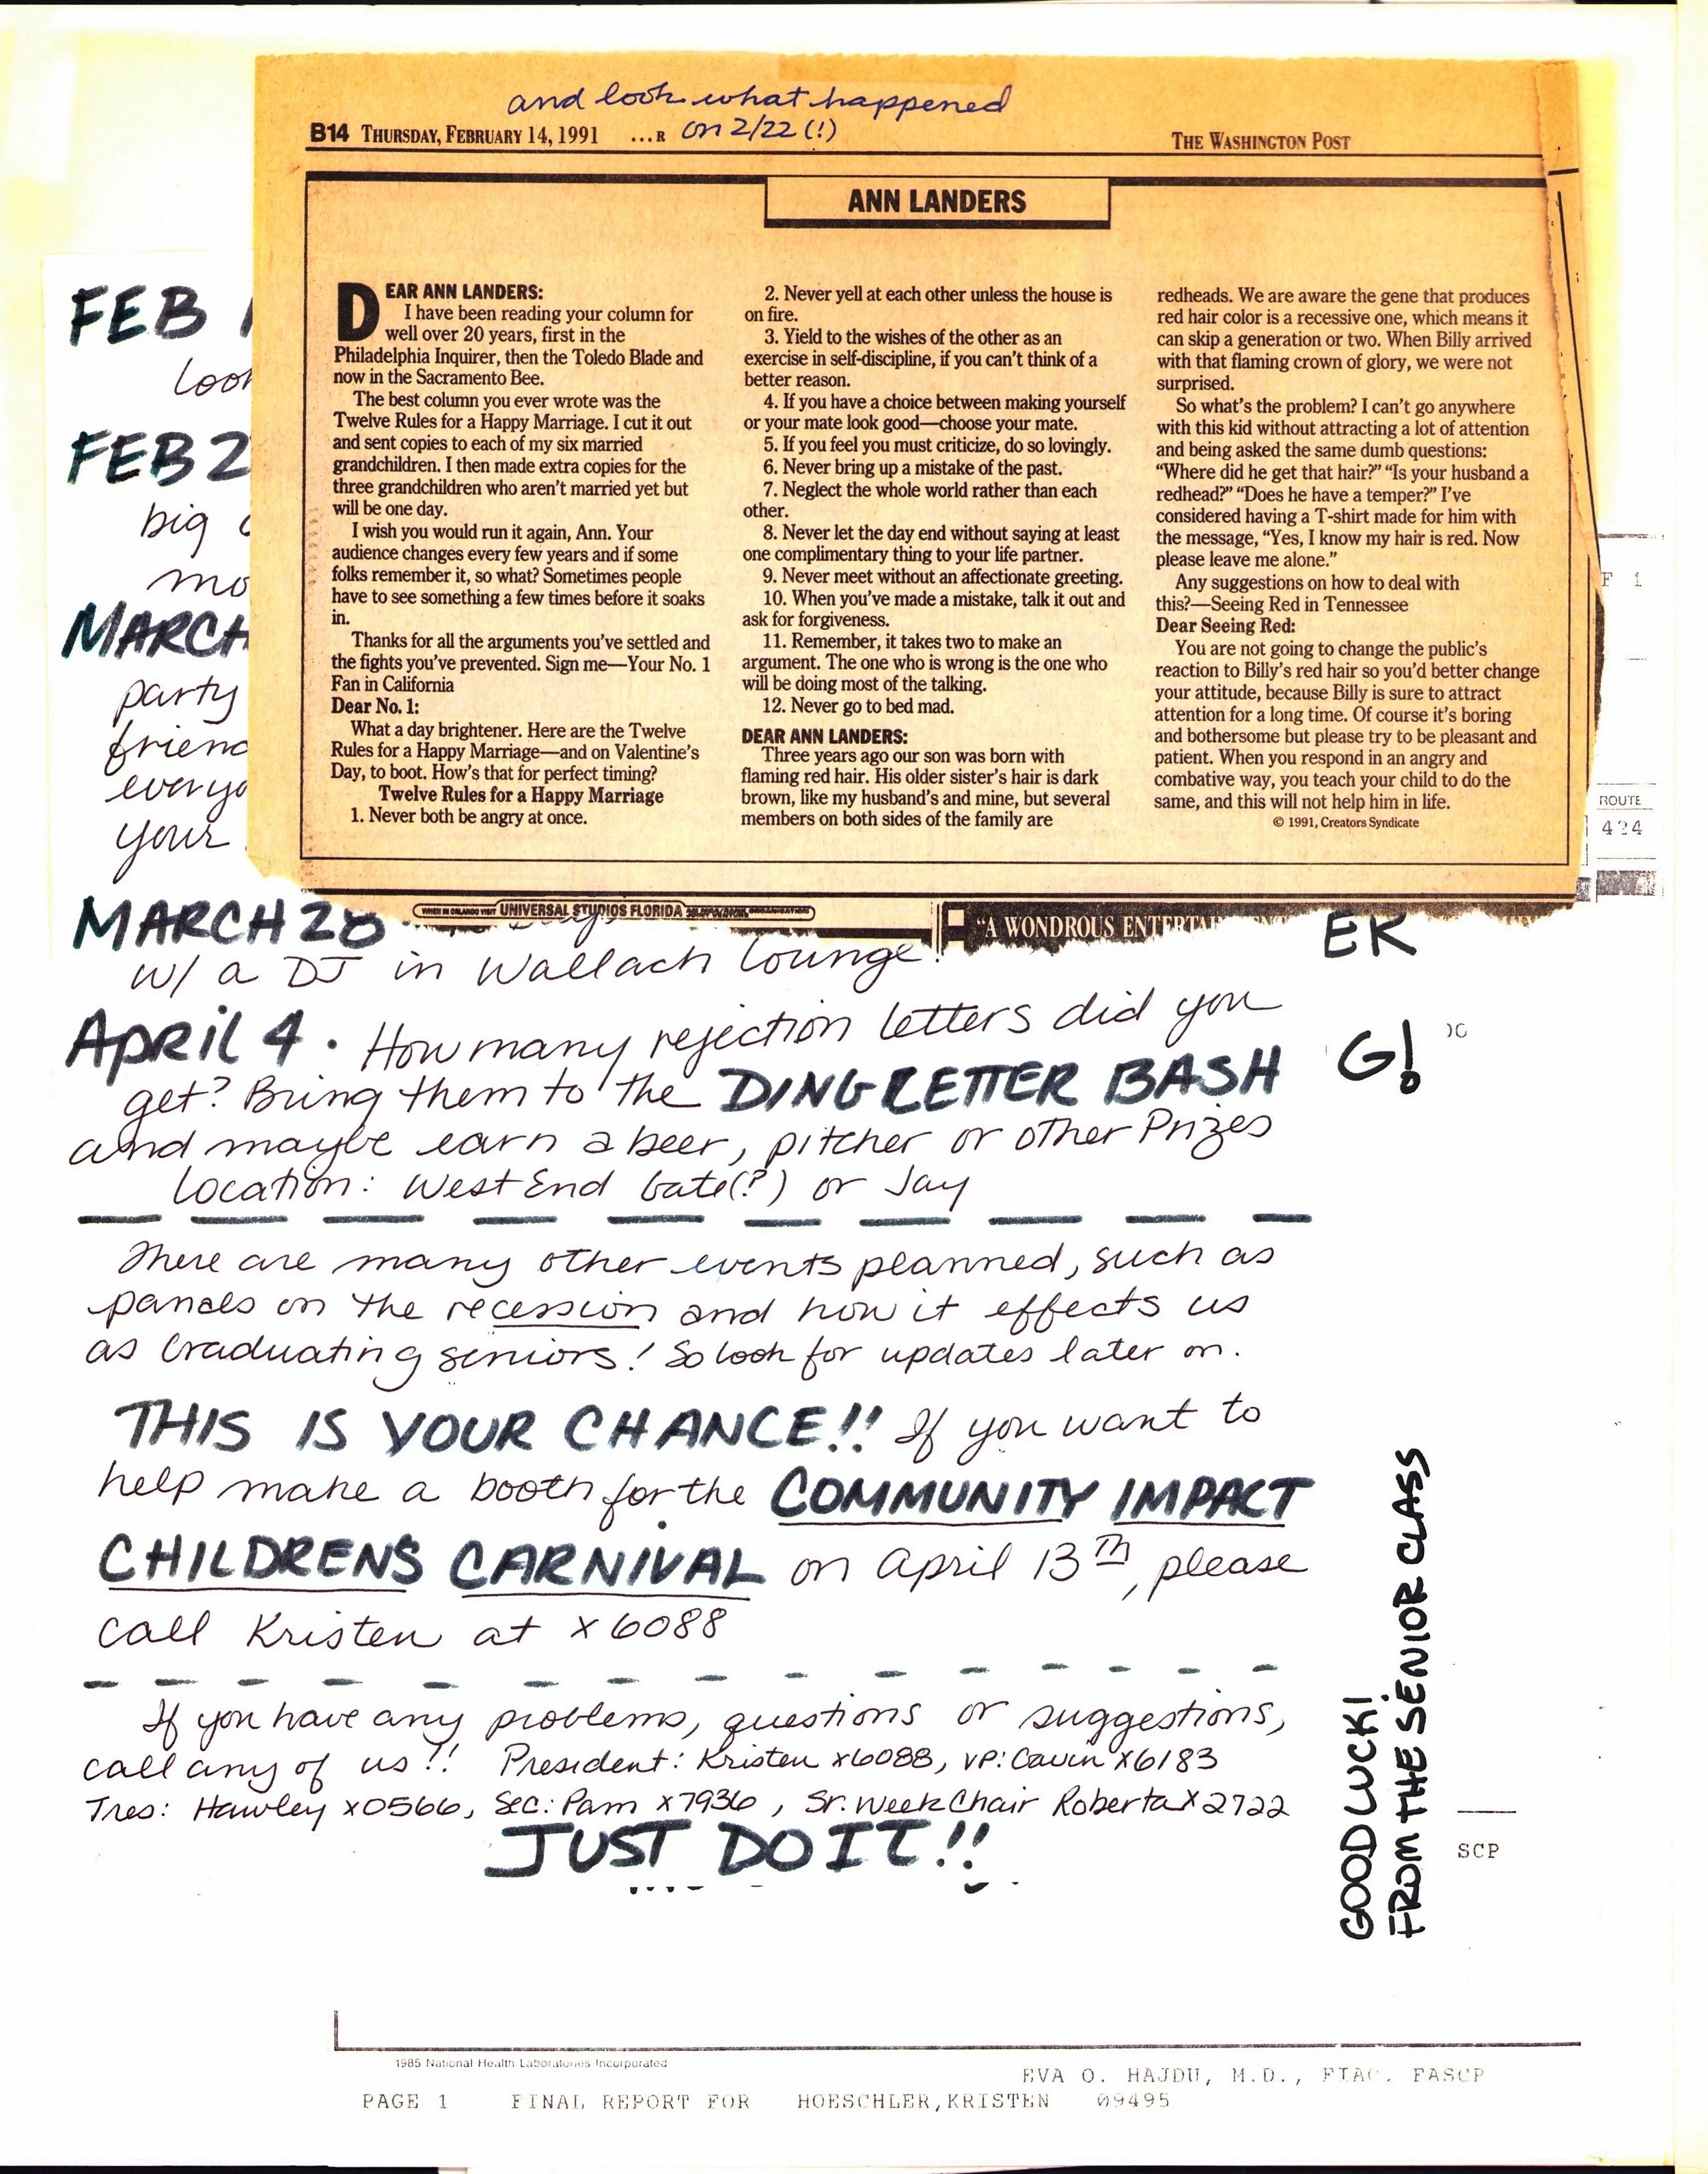 and look what happened
on 2/22 (!)
B14 THURSDAY, FEBRUARY 14, 1991 ...R
THE WASHINGTON POST
ANN LANDERS
DEAR ANN LANDERS:
I have been reading your column for
well over 20 years, first in the
Philadelphia Inquirer, then the Toledo Blade and
now in the Sacramento Bee.
The best column you ever wrote was the
Twelve Rules for a Happy Marriage. I cut it out
and sent copies to each of my six married
grandchildren. I then made extra copies for the
three grandchildren who aren't married yet but
will be one day.
I wish you would run it again, Ann. Your
audience changes every few years and if some
folks remember it, so what? Sometimes people
have to see something a few times before it soaks
in.
Thanks for all the arguments you've settled and
the fights you've prevented. Sign me—Your No. 1
Fan in California
Dear No. 1:
What a day brightener. Here are the Twelve
Rules for a Happy Marriage—and on Valentine's
Day, to boot. How's that for perfect timing?
Twelve Rules for a Happy Marriage
1. Never both be angry at once.
2. Never yell at each other unless the house is
on fire.
3. Yield to the wishes of the other as an
exercise in self-discipline, if you can't think of a
better reason.
4. If you have a choice between making yourself
or your mate look good—choose your mate.
5. If you feel you must criticize, do so lovingly.
6. Never bring up a mistake of the past.
7. Neglect the whole world rather than each
other.
8. Never let the day end without saying at least
one complimentary thing to your life partner.
9. Never meet without an affectionate greeting.
10. When you've made a mistake, talk it out and
ask for forgiveness.
11. Remember, it takes two to make an
argument. The one who is wrong is the one who
will be doing most of the talking.
12. Never go to bed mad.
DEAR ANN LANDERS:
Three years ago our son was born with
flaming red hair. His older sister's hair is dark
brown, like my husband's and mine, but several
members on both sides of the family are
redheads. We are aware the gene that produces
red hair color is a recessive one, which means it
can skip a generation or two. When Billy arrived
with that flaming crown of glory, we were not
surprised.
So what's the problem? I can't go anywhere
with this kid without attracting a lot of attention
and being asked the same dumb questions:
"Where did he get that hair?" "Is your husband a
redhead?" "Does he have a temper?" I've
considered having a T-shirt made for him with
the message, "Yes, I know my hair is red. Now
please leave me alone."
Any suggestions on how to deal with
this?—Seeing Red in Tennessee
Dear Seeing Red:
You are not going to change the public's
reaction to Billy's red hair so you'd better change
your attitude, because Billy is sure to attract
attention for a long time. Of course it's boring
and bothersome but please try to be pleasant and
patient. When you respond in an angry and
combative way, you teach your child to do the
same, and this will not help him in life.
© 1991, Creators Syndicate
WHEN IN ORLANDO VISIT UNIVERSAL STUDIOS FLORIDA
"A WONDROUS
FEB
FEB 2
big
MARCH
party
your
ROUTE
424
MARCH 28
w/ a DJ in Wallach Lounge!
ER
April 4. How many rejection letters did you
get? Bring them to the DING LETTER BASH
G!
and maybe earn a beer, pitcher or other Prizes
Location: West End Gate(?) or Jay
There are many other events planned, such as
panels on the recession and how it effects us
as Graduating seniors! So look for updates later on.
THIS IS YOUR CHANCE!! If you want to
help make a booth for the COMMUNITY IMPACT
CHILDRENS CARNIVAL on April 13th, please
call Kristen at x6088
If you have any problems, questions or suggestions,
call any of us!! President: Kristen x6088, VP: Gavin x6183
Tres: Hawley x0566, Sec: Pam x7936, Sr. Week Chair Roberta x2722
JUST DO IT!!
GOOD LUCK!
FROM THE SENIOR CLASS
SCP
1985 National Health Laboratories Incorporated
EVA O. HAJDU, M.D., FIAC, FASCP
PAGE 1 FINAL REPORT FOR HOESCHLER,KRISTEN 09495